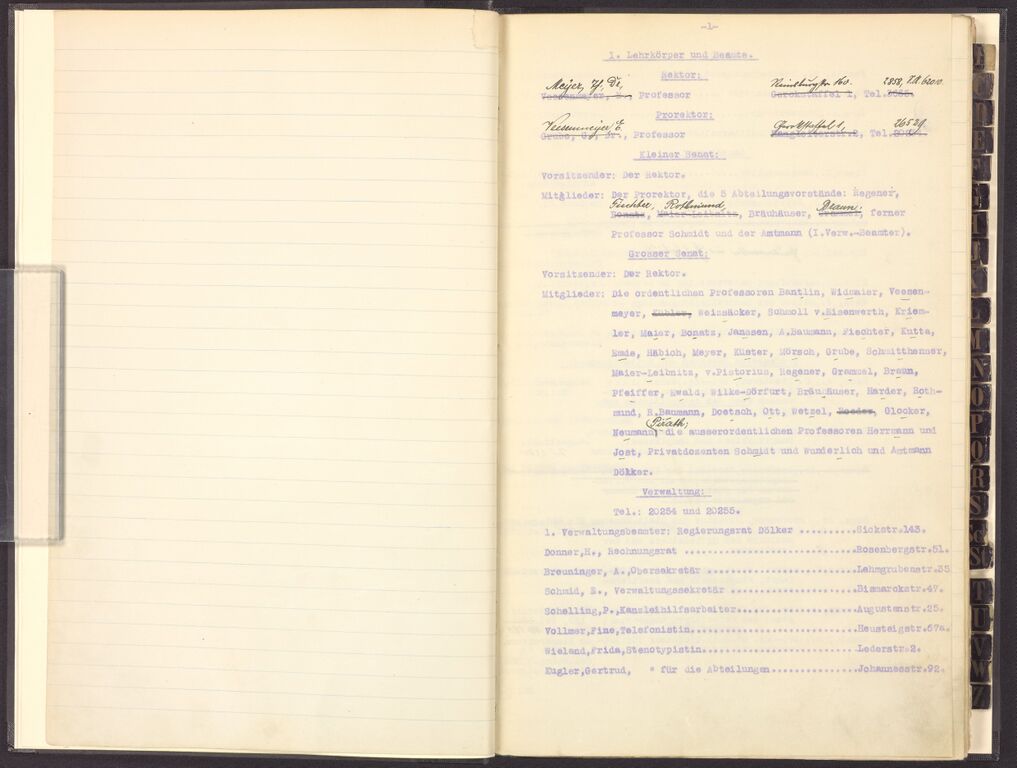 -1-
I. Lehrkörper und Beamte.
Rektor:
Meyer, Dr.,
Veesenmeyer, E., Professor Gerokstaffel 1, Tel.
Prorektor:
Veesenmeyer E. Gerokstaffel 1, 26529
Grube, G., Dr., Professor Tel.
Kleiner Senat:
Vorsitzender: Der Rektor.
Mitglieder: Der Prorektor, die 5 Abteilungsvorstände: Regener,
Fiechter, Rothmund, Braun;
Bonatz, Maier-Leibnitz, Bräuhäuser, Grammel, ferner
Professor Schmidt und der Amtmann (I.Verw.-Beamter).
Grosser Senat:
Vorsitzender: Der Rektor.
Mitglieder: Die ordentlichen Professoren Bantlin, Widmaier, Veesen-
meyer, Kübler, Weissäcker, Schmoll v.Eisenwerth, Kriem-
ler, Maier, Bonatz, Janssen, A.Baumann, Fiechter, Kutta,
Emde, Häbich, Meyer, Küster, Mörsch, Grube, Schmitthenner,
Maier-Leibnitz, v.Pistorius, Regener, Grammel, Braun,
Pfeiffer, Ewald, Wilke-Dörfurt, Bräuhäuser, Harder, Roth-
mund, R.Baumann, Doetsch, Ott, Wetzel, Roeder, Glocker,
Pirath;
Neumann, die ausserordentlichen Professoren Herrmann und
Jost, Privatdozenten Schmidt und Wunderlich und Amtmann
Dölker.
Verwaltung:
Tel.: 20254 und 20255.
1. Verwaltungsbeamter: Regierungsrat Dölker ..........Sickstr.143.
Donner,H., Rechnungsrat ..............................Rosenbergstr.51.
Breuninger, A.,Obersekretär ..........................Lehmgrubenstr.35
Schmid, E., Verwaltungssekretär ......................Bismarckstr.47.
Schelling,P.,Kanzleihilfsarbeiter.....................Augustenstr.25.
Vollmer,Fine,Telefonistin.............................Heusteigstr.67a.
Wieland,Frida,Stenotypistin...........................Lederstr.2.
Kugler,Gertrud, " für die Abteilungen..............Johannesstr.92.